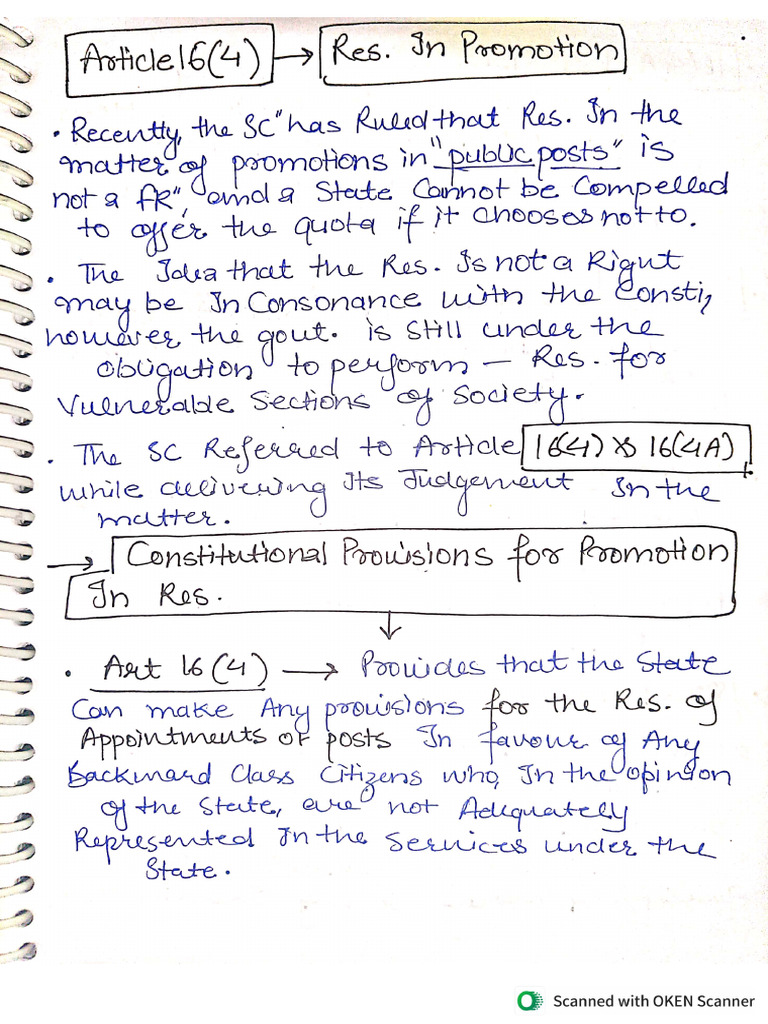 Article 16(4) → Res. In Promotion
• Recently, the SC" has Ruled that Res. In the
matter of promotions in "public posts" is
not a FR", and a State Cannot be Compelled
to offer the quota if it chooses not to.
• The Idea that the Res. Is not a Right
may be In Consonance with the Consti,
however the govt. is still under the
obligation to perform — Res. for
Vulnerable Sections of Society.
• The SC Referred to Article 16(4) & 16(4A)
while delivering Its Judgement In the
matter.
→ Constitutional Provisions for Promotion
In Res.
↓
• Art 16(4) → Provides that the State
Can make Any provisions for the Res. of
Appointments or posts In favour of Any
Backward Class Citizens who, In the opinion
of the State, are not Adequately
Represented In the Services under the
State.
Scanned with OKEN Scanner